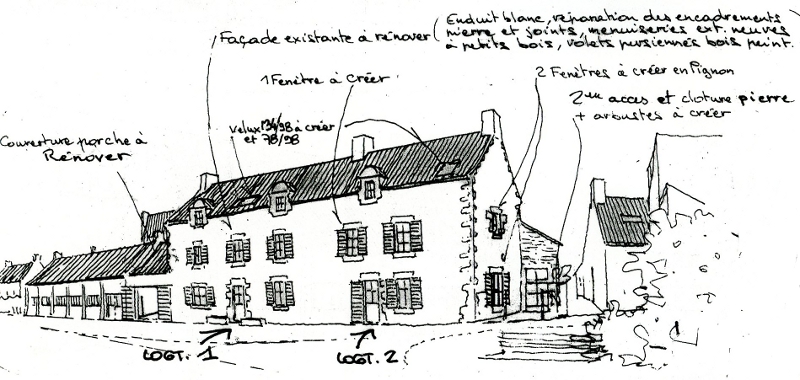 Façade existante à rénover (Enduit blanc, réparation des encadrements
pierre et joints, menuiseries ext. neuves
à petits bois, volets persiennés bois peint.
1 Fenêtre à créer
2 Fenêtres à créer en Pignon
2me accès et cloture pierre
+ arbustes à créer
Velux 134/98 à créer
et 78/98
Couverture porche à
Rénover
LOGT. 1
LOGT. 2